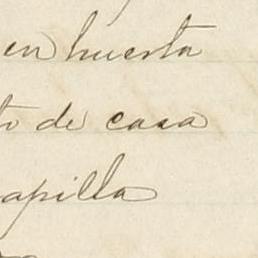 en huerta
to de casa
apilla